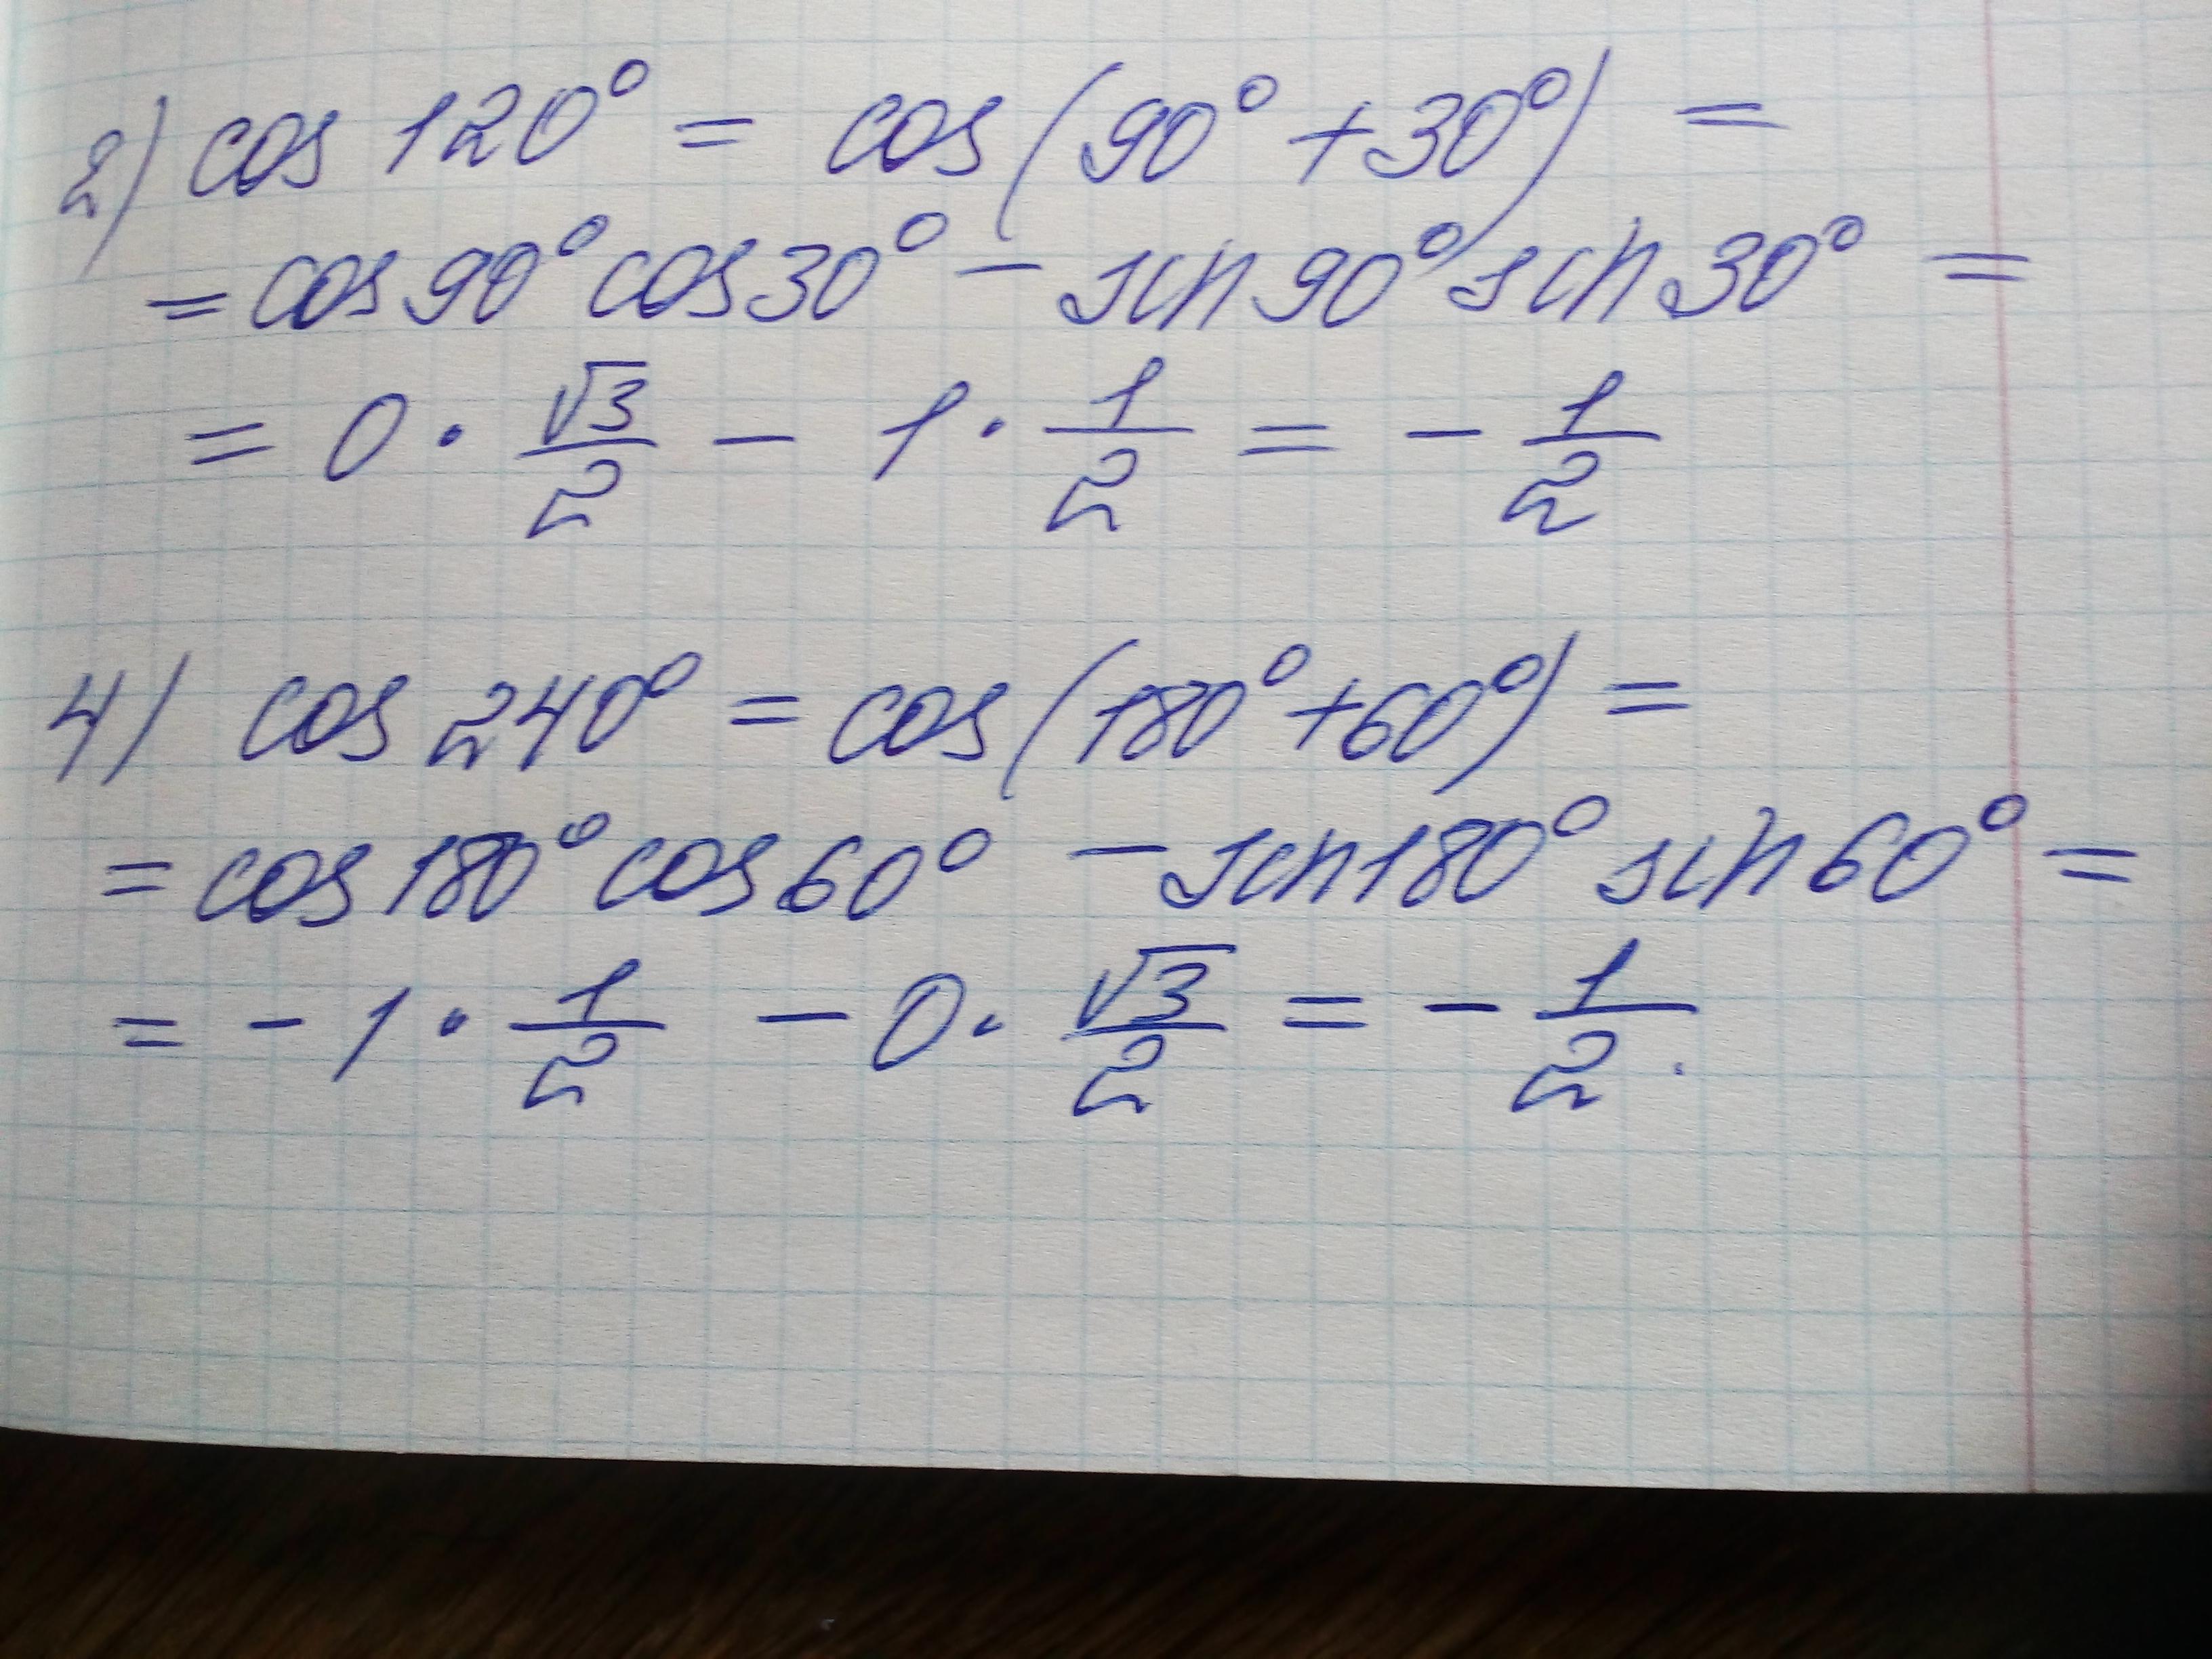 2) cos 120° = cos(90° + 30°) =
= cos 90° cos 30° - sin 90° sin 30° =
= 0 · √3/2 - 1 · 1/2 = - 1/2
4) cos 240° = cos(180° + 60°) =
= cos 180° cos 60° - sin 180° sin 60° =
= - 1 · 1/2 - 0 · √3/2 = - 1/2.